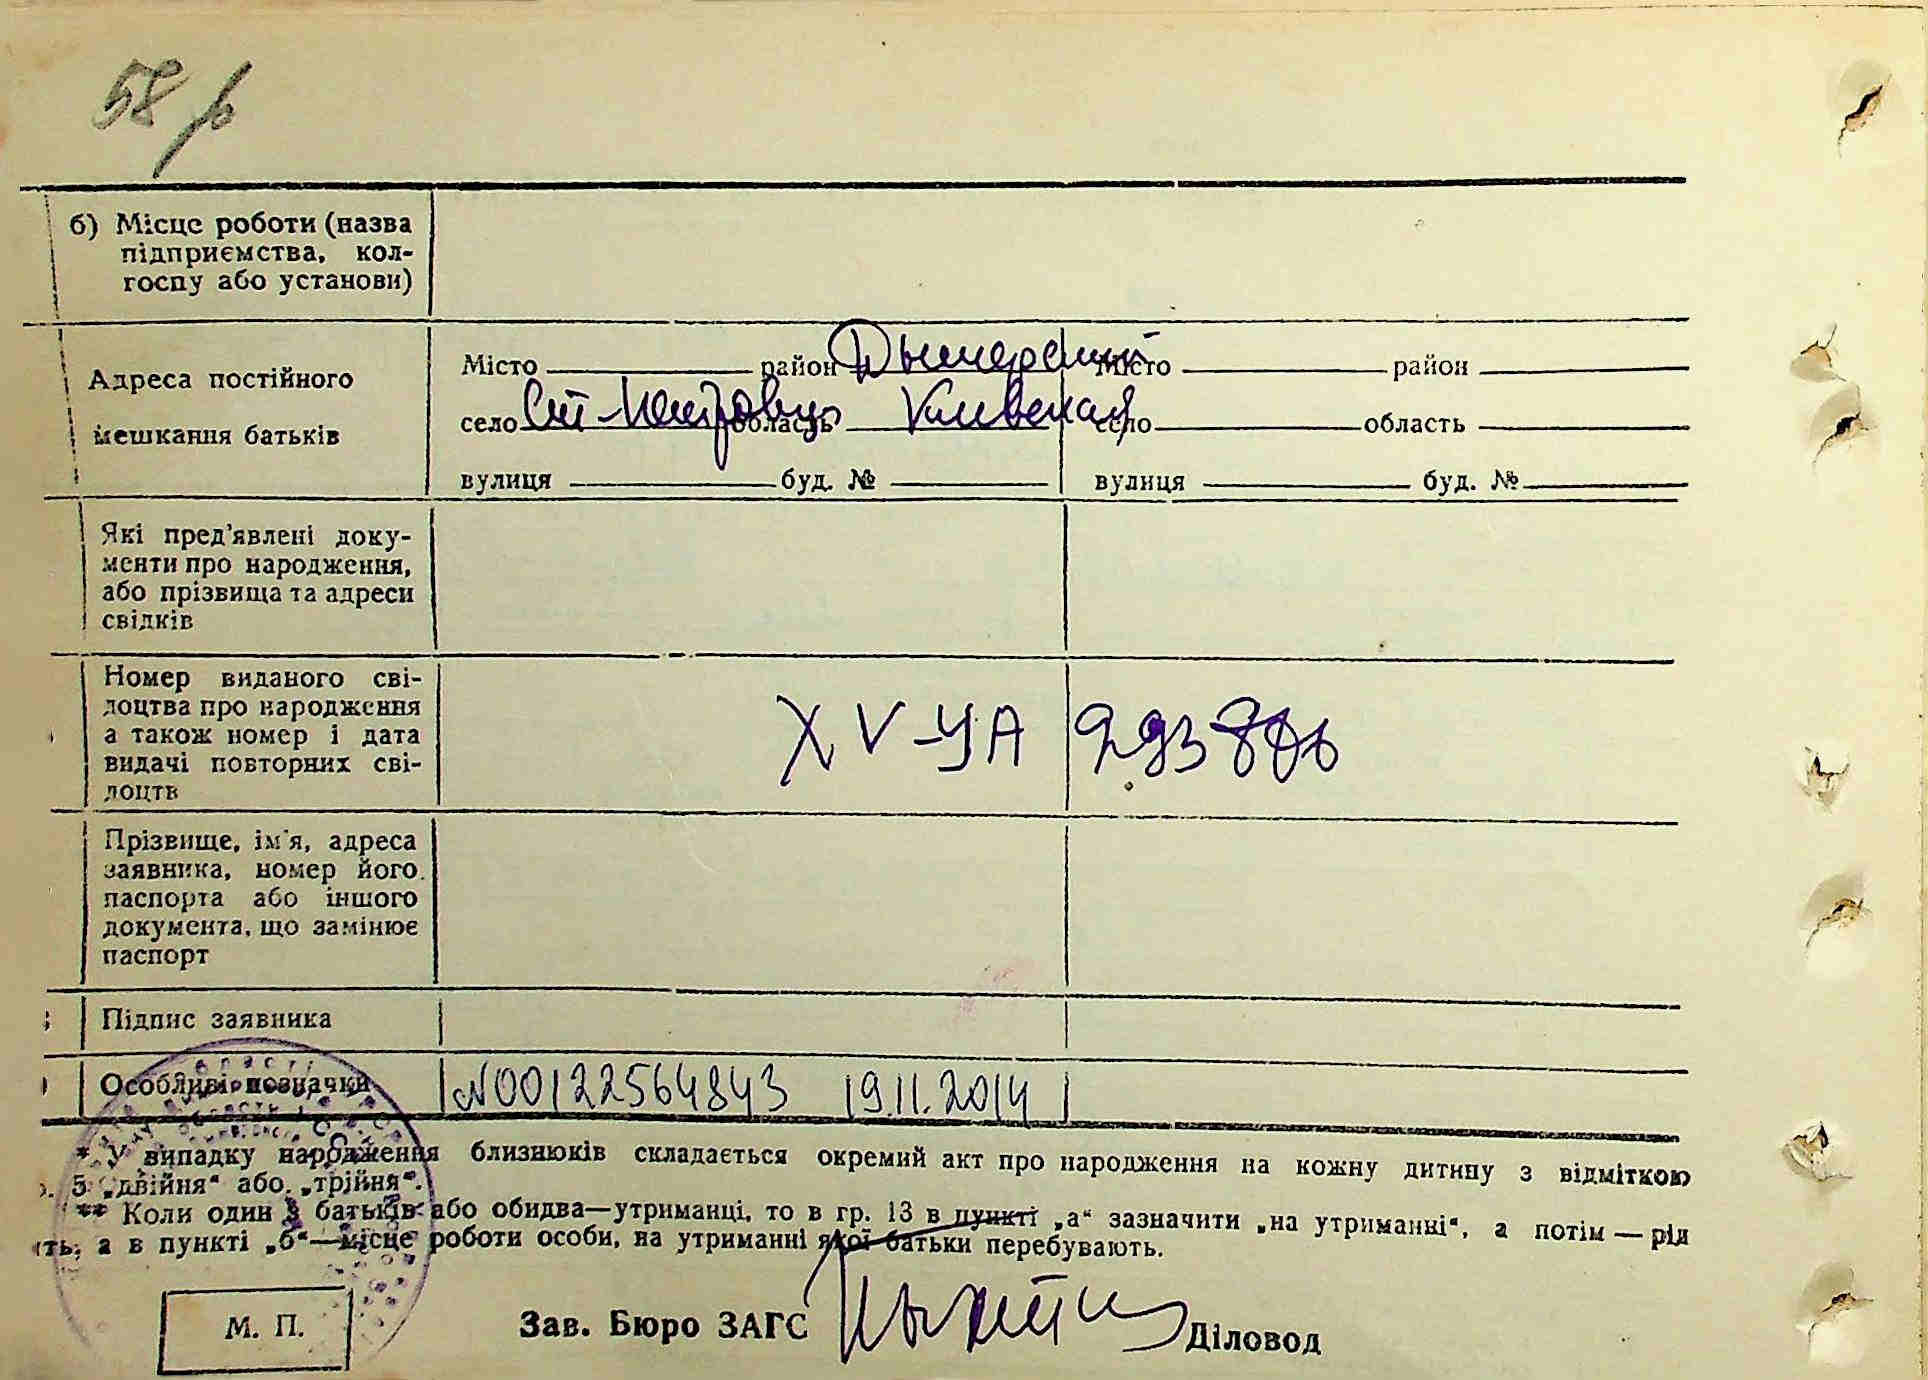 58
б) Місце роботи (назва
підприємства, кол-
госпу або установи)
Адреса постійного
мешкання батьків
Місто район Дымерский Місто район
село Ст-Петровцы область Киевская село область
вулиця буд. № вулиця буд. №
Які пред'явлені доку-
менти про народження,
або прізвища та адреси
свідків
Номер виданого сві-
доцтва про народження
а також номер і дата
видачі повторних сві-
доцтв
XV-УА 293
Прізвище, ім'я, адреса
заявника, номер його
паспорта або іншого
документа, що замінює
паспорт
Підпис заявника
Особливі позначки
N00122564843 19.11.2014
* У випадку народження близнюків складається окремий акт про народження на кожну дитину з відміткою
. 5 „двійня“ або „трійня“.
** Коли один з батьків або обидва—утриманці, то в гр. 13 в пункті „а“ зазначити „на утриманні“, а потім — рід
ть, а в пункті „б“—місце роботи особи, на утриманні якої батьки перебувають.
М. П.
Зав. Бюро ЗАГС
Діловод